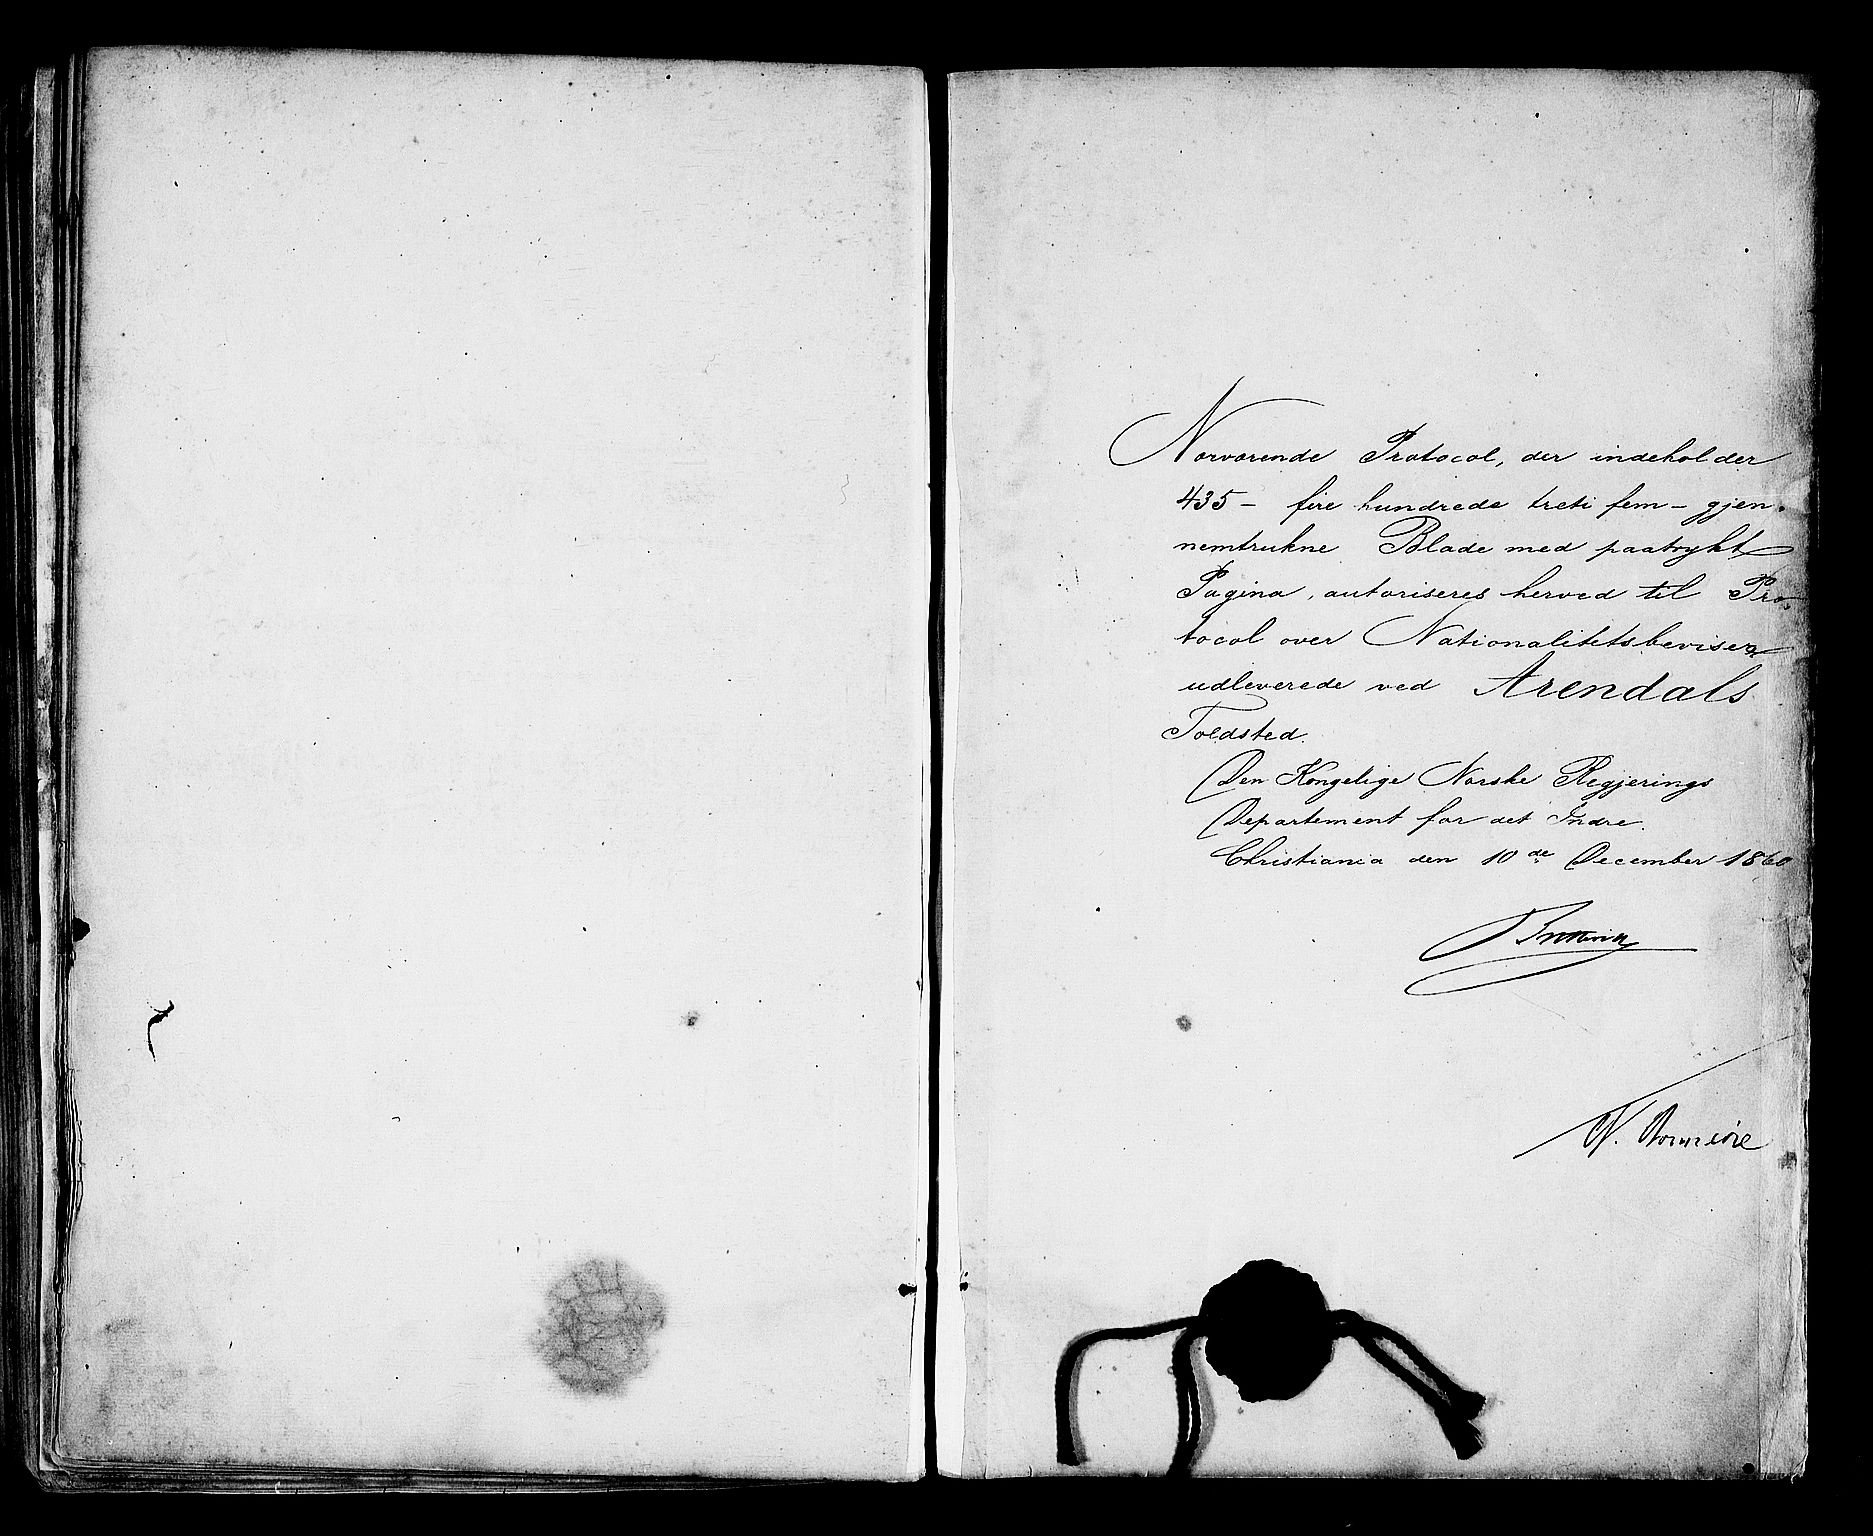 Nærværende Protocol, der indeholder
435 – fire hundrede treti fem – gjen-
nemtrukne Blade med paatrykt
Pagina, autoriseres herved til Pro-
tocol over Nationalitetsbeviser,
udleverede ved Arendals
Toldsted.
Den Kongelige Norske Regjerings
Departement for det Indre.
Christiania den 10de December 1860